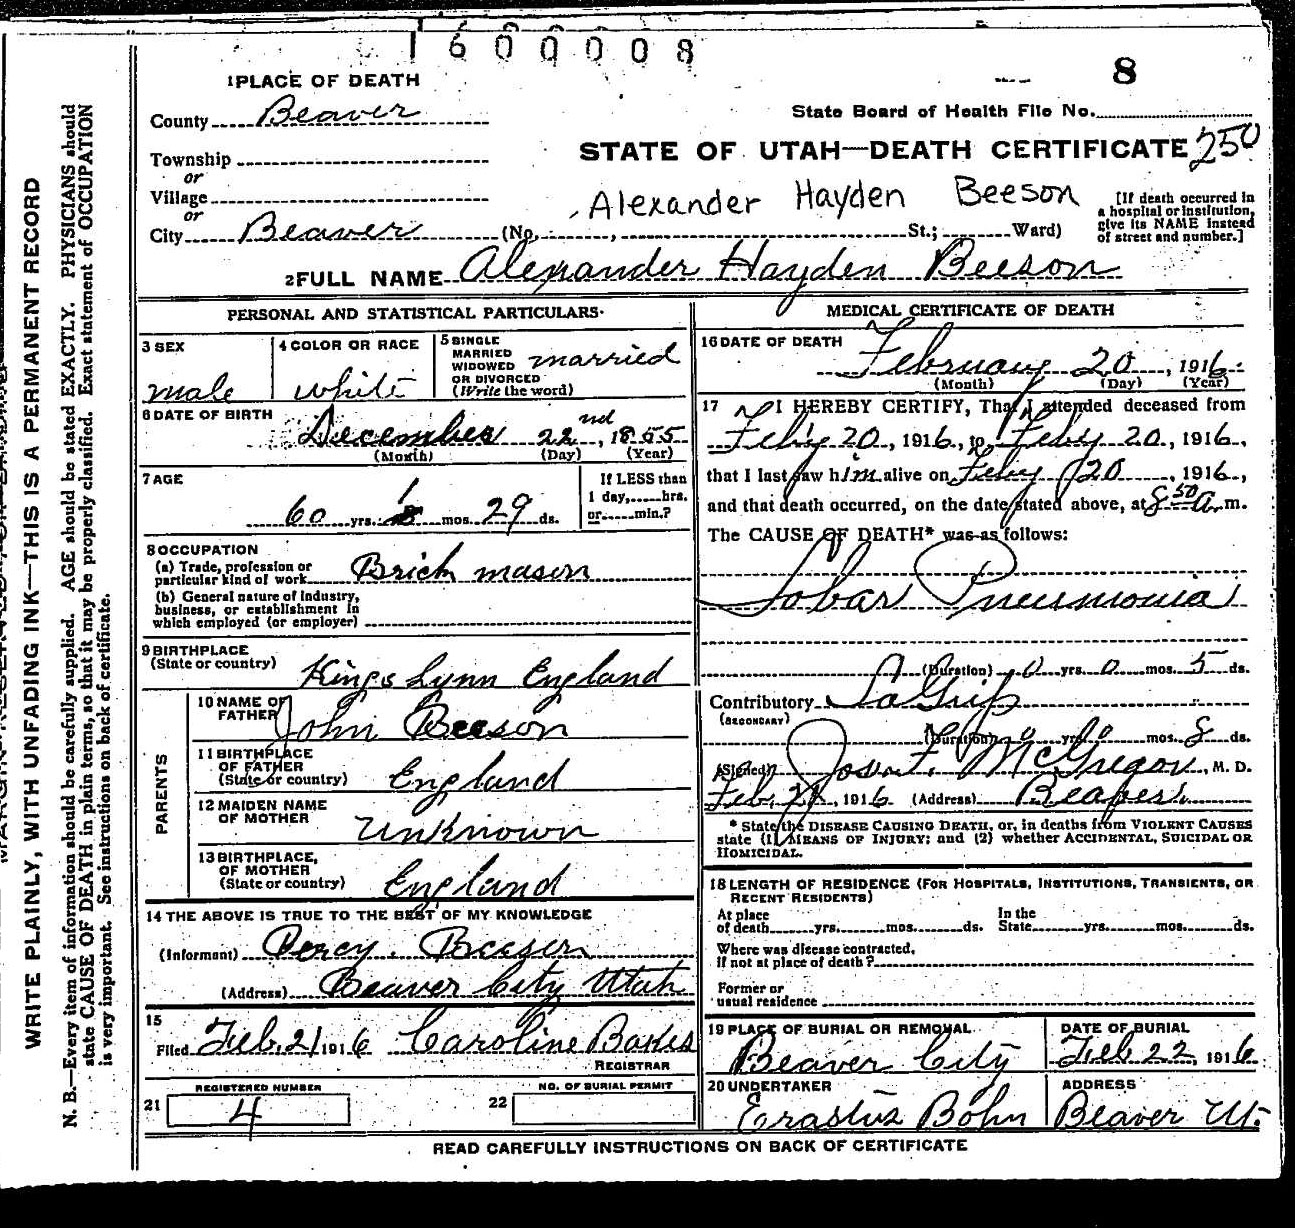 1600008
8
1 PLACE OF DEATH
County Beaver
State Board of Health File No.
Township
or
STATE OF UTAH—DEATH CERTIFICATE 250
Village
or
Alexander Hayden Beeson
[If death occurred in
a hospital or institution,
give its NAME instead
of street and number.]
City Beaver (No. , St.; Ward)
2 FULL NAME Alexander Hayden Beeson
PERSONAL AND STATISTICAL PARTICULARS
3 SEX
male
4 COLOR OR RACE
white
5 SINGLE
MARRIED
WIDOWED
OR DIVORCED
(Write the word)
married
6 DATE OF BIRTH
December 22nd, 1855
(Month) (Day) (Year)
7 AGE
60 yrs. 1 mos. 29 ds.
If LESS than
1 day, hrs.
or min.?
8 OCCUPATION
(a) Trade, profession or
particular kind of work Brick mason
(b) General nature of industry,
business, or establishment in
which employed (or employer)
9 BIRTHPLACE
(State or country)
Kings Lynn England
PARENTS
10 NAME OF
FATHER
John Beeson
11 BIRTHPLACE
OF FATHER
(State or country)
England
12 MAIDEN NAME
OF MOTHER
Unknown
13 BIRTHPLACE,
OF MOTHER
(State or country)
England
14 THE ABOVE IS TRUE TO THE BEST OF MY KNOWLEDGE
(Informant) Percy Beeson
(Address) Beaver City Utah
15
Filed Feb. 21 1916 Caroline Bakes
REGISTRAR
REGISTERED NUMBER
21 4
NO. OF BURIAL PERMIT
22
MEDICAL CERTIFICATE OF DEATH
16 DATE OF DEATH
February 20, 1916
(Month) (Day) (Year)
17 I HEREBY CERTIFY, That I attended deceased from
Feby 20, 1916, to Feby 20, 1916,
that I last saw him alive on Feby 20, 1916,
and that death occurred, on the date stated above, at 8 50 a.m.
The CAUSE OF DEATH* was as follows:
Lobar Pneumonia
(Duration) 0 yrs. 0 mos. 5 ds.
Contributory LaGrip
(SECONDARY)
(Duration) 0 yrs. 0 mos. 8 ds.
(Signed) Jos. F. McGregor, M. D.
Feb. 21, 1916 (Address) Beaver
* State the DISEASE CAUSING DEATH, or, in deaths from VIOLENT CAUSES
state (1) MEANS OF INJURY; and (2) whether ACCIDENTAL, SUICIDAL OR
HOMICIDAL.
18 LENGTH OF RESIDENCE (FOR HOSPITALS, INSTITUTIONS, TRANSIENTS, OR
RECENT RESIDENTS)
At place
of death yrs. mos. ds.
In the
State yrs. mos. ds.
Where was disease contracted,
if not at place of death?
Former or
usual residence
19 PLACE OF BURIAL OR REMOVAL
Beaver City
DATE OF BURIAL
Feb 22, 1916
20 UNDERTAKER
Erastus Bohn
ADDRESS
Beaver Ut.
READ CAREFULLY INSTRUCTIONS ON BACK OF CERTIFICATE
WRITE PLAINLY, WITH UNFADING INK—THIS IS A PERMANENT RECORD
N. B.—Every item of information should be carefully supplied. AGE should be stated EXACTLY. PHYSICIANS should
state CAUSE OF DEATH in plain terms, so that it may be properly classified. Exact statement of OCCUPATION
is very important. See instructions on back of certificate.